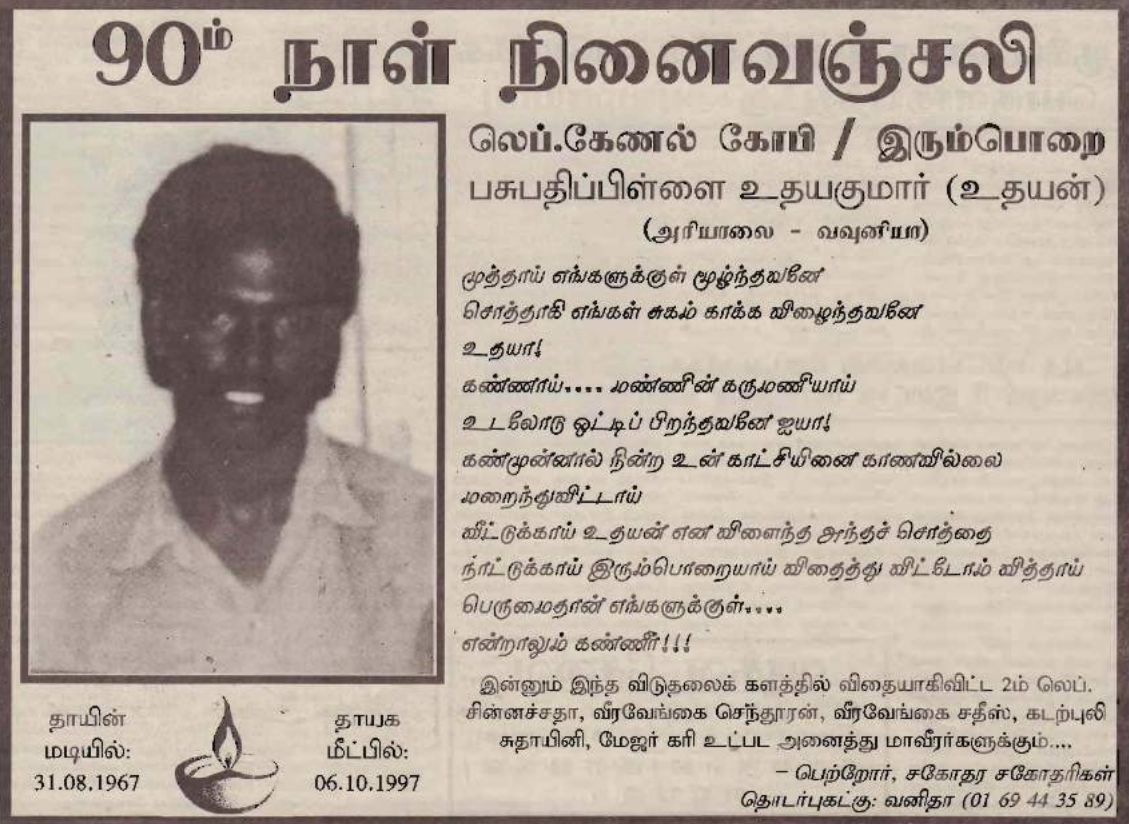 90ம் நாள் நினைவஞ்சலி
லெப்.கேணல் கோபி / இரும்பொறை
பசுபதிப்பிள்ளை உதயகுமார் (உதயன்)
(அரியாலை - வவுனியா)
முத்தாய் எங்களுக்குள் மூழ்ந்தவனே
சொத்தாகி எங்கள் சுகம் காக்க விழைந்தவனே
உதயா!
கண்ணாய்.... மண்ணின் கருமணியாய்
உடலோடு ஒட்டிப் பிறந்தவனே ஐயா!
கண்முன்னால் நின்ற உன் காட்சியினை காணவில்லை
மறைந்துவிட்டாய்
வீட்டுக்காய் உதயன் என விளைந்த அந்தச் சொத்தை
நாட்டுக்காய் இரும்பொறையாய் விதைத்து விட்டோம் வித்தாய்
பெருமைதான் எங்களுக்குள்....
என்றாலும் கண்ணீர்!!!
இன்னும் இந்த விடுதலைக் களத்தில் விதையாகிவிட்ட 2ம் லெப்.
சின்னச்சதா, வீரவேங்கை செந்தூரன், வீரவேங்கை சதீஸ், கடற்புலி
சுதாயினி, மேஜர் கரி உட்பட அனைத்து மாவீரர்களுக்கும்....
– பெற்றோர், சகோதர சகோதரிகள்
தொடர்புகட்கு: வனிதா (01 69 44 35 89)
தாயின்
மடியில்:
31.08.1967
தாயக
மீட்பில்:
06.10.1997